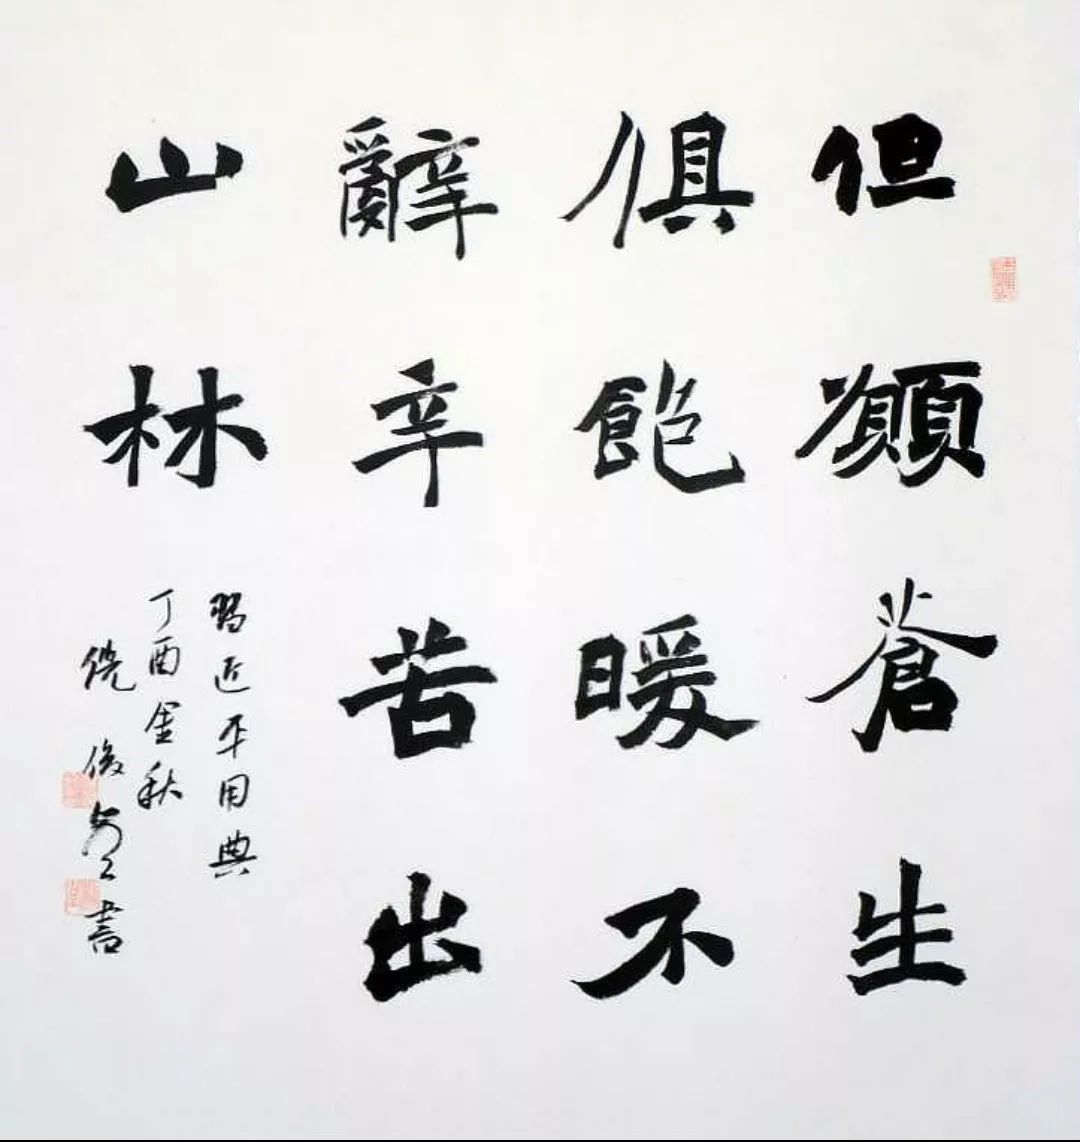 但願蒼生
俱飽暖不
辭辛苦出
山林
習近平用典
丁酉金秋
俊書